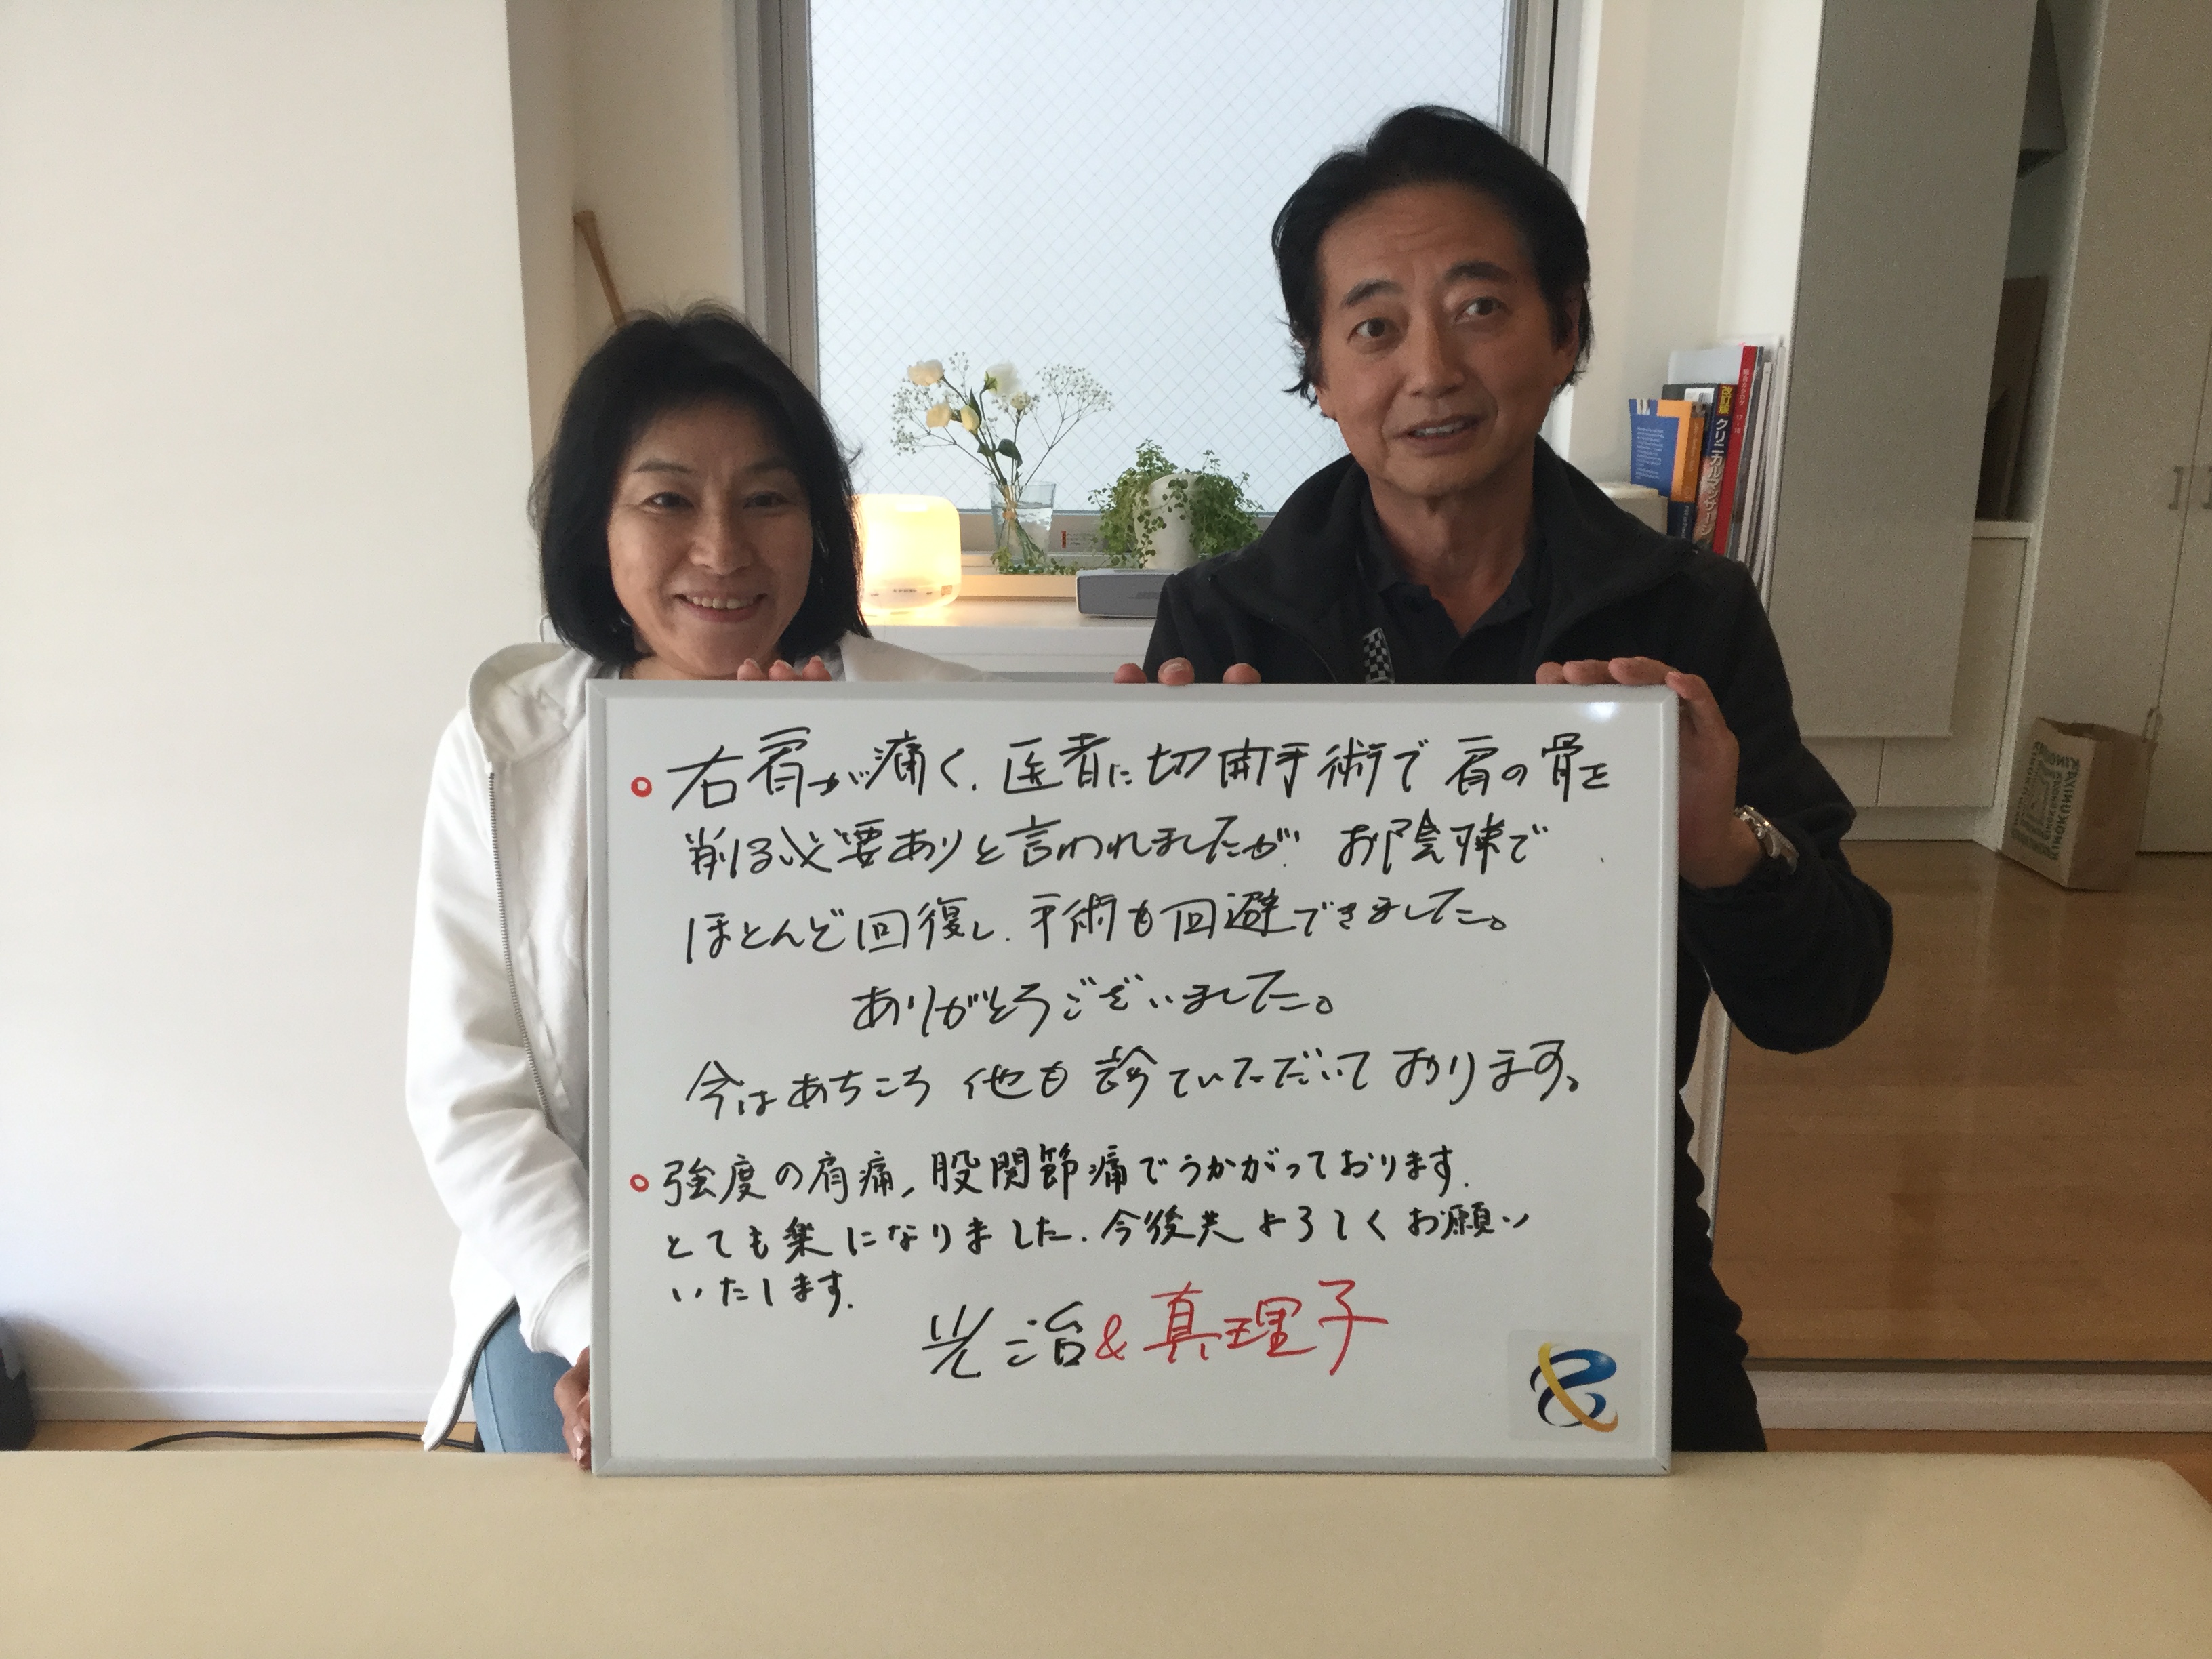 右肩が痛く、医者に切開手術で肩の骨を
削る必要ありと言われましたが、お陰様で
ほとんど回復し、手術も回避できました。
ありがとうございました。
今はあちころ 他も診ていただいております。
強度の肩痛、股関節痛でうかがっております.
とても楽になりました. 今後共よろしくお願い
いたします.
光治&真理子
改訂版
クリニカルマッサージ
総合カタログ
KINOKUNIYA